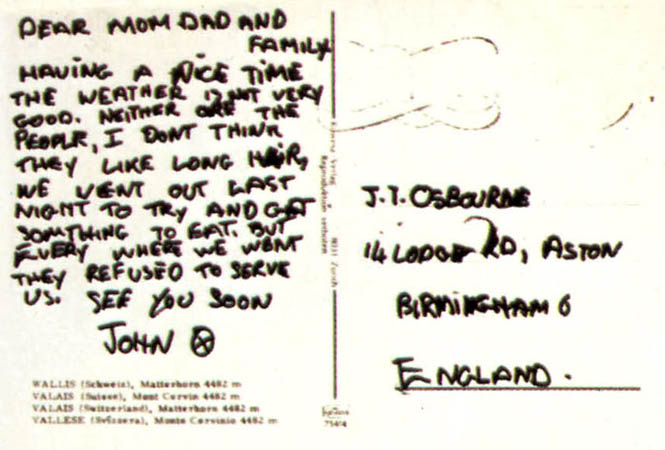 DEAR MOM DAD AND
FAMILY
HAVING A NICE TIME
THE WEATHER IS NOT VERY
GOOD. NEITHER ARE THE
PEOPLE, I DONT THINK
THEY LIKE LONG HAIR,
WE WENT OUT LAST
NIGHT TO TRY AND GET
SOMTHING TO EAT. BUT
EVERY WHERE WE WENT
THEY REFUSED TO SERVE
US. SEE YOU SOON
JOHN
WALLIS (Schweiz), Matterhorn 4482 m
VALAIS (Suisse), Mont Cervin 4482 m
VALAIS (Switzerland), Matterhorn 4482 m
VALLESE (Svizzera), Monte Cervinio 4482 m
J.T. OSBOURNE
14 LODGE RD, ASTON
BIRMINGHAM 6
ENGLAND.